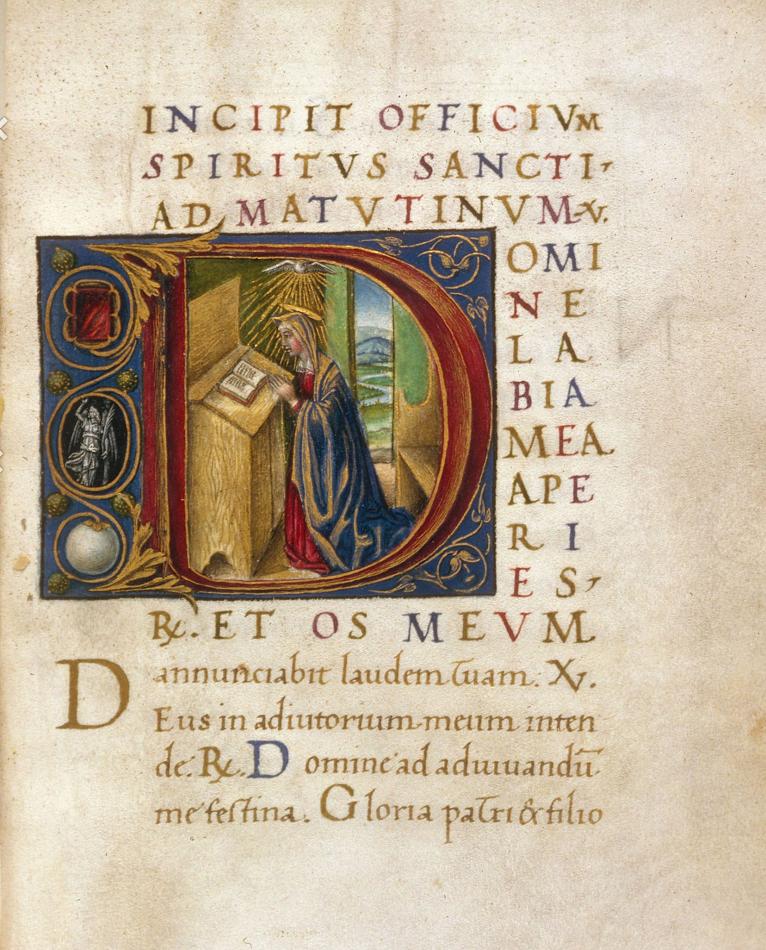 INCIPIT OFFICIVM
SPIRITVS SANCTI
AD MATVTINVM. V.
D
OMI
N E
L A
BIA
MEA
APE
R I
E S,
R. ET OS MEVM
annunciabit laudem tuam. V.
D Eus in adiutorium meum inten
de. R. Domine ad adiuuandū
me festina. Gloria patri & filio